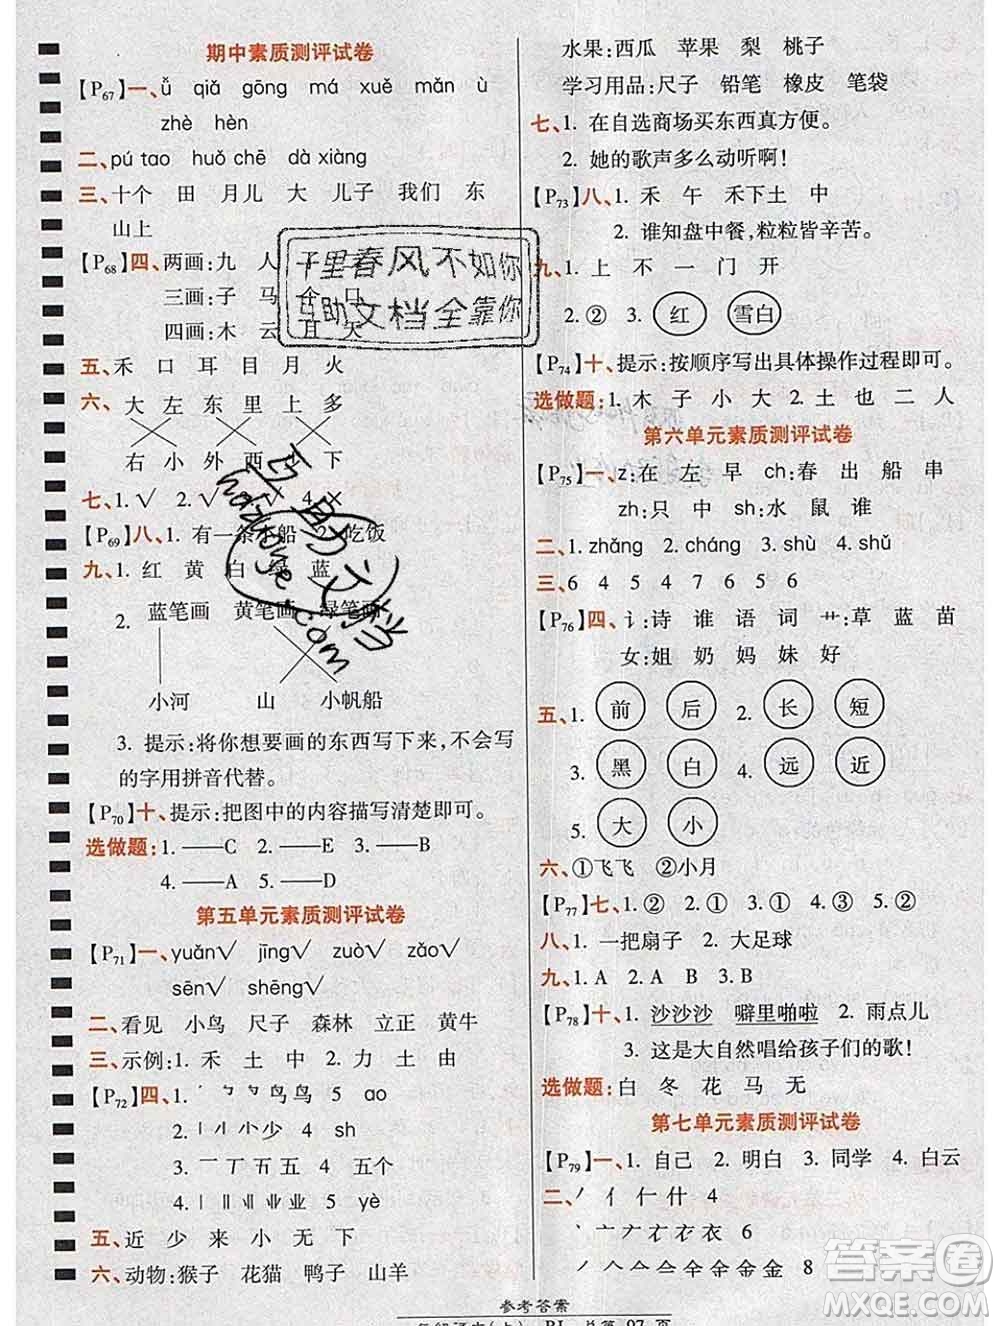 期中素质测评试卷
【P67】一、ǔ qiǎ gōng má xuě mǎn ù
zhè hèn
二、pú tao huǒ chē dà xiàng
三、十个 田 月儿 大 儿子 我们 东
山上
【P68】四、两画:九 人
三画:子 马 个 口
四画:木 云 且 天
五、禾 口 耳 目 月 火
六、大 左 东 里 上 多
右 小 外 西 少 下
七、1.√ 2.√ 3.√ 4.×
【P69】八、1. 有一条小船 2. 吃饭
九、1. 红 黄 白 绿 蓝
2. 蓝笔画 黄笔画 绿笔画
小河 山 小帆船
3. 提示:将你想要画的东西写下来,不会写
的字用拼音代替。
【P70】十、提示:把图中的内容描写清楚即可。
选做题:1.——C 2.——E 3.——B
4.——D 5.——A
第五单元素质测评试卷
【P71】一、yuǎn√ jīng√ zuò√ zǎo√
sēn√ shēng√
二、看见 小鸟 尺子 森林 立正 黄牛
三、示例:1. 禾 土 中 2. 力 土 由
【P72】四、1.㇒ 鸟鸟 5 ao
2.亅 小 小 少 4 sh
3.一 丅 五 五 4 五个
4.丨 业 业 5 yè
五、近 少 来 小 无 下
六、动物:猴子 花猫 鸭子 山羊
水果:西瓜 苹果 梨 桃子
学习用品:尺子 铅笔 橡皮 笔袋
七、1. 在自选商场买东西真方便。
2. 她的歌声多么动听啊!
【P73】八、1. 禾 午 禾下土 中
2. 谁知盘中餐,粒粒皆辛苦。
九、1. 上 不 一 门 开
2. ② 3. 红 雪白
【P74】十、提示:按顺序写出具体操作过程即可。
选做题:1. 木 子 小 大 2. 土 也 二 人
第六单元素质测评试卷
【P75】一、z:在 左 早 ch:春 出 船 串
zh:只 中 sh:水 鼠 谁
二、1. zhǎng 2. cháng 3. shù 4. shǔ
三、6 4 5 6 7 8 6
【P76】四、讠:诗 谁 语 词 艹:草 蓝 苗
女:姐 奶 妈 妹 好
五、1. 前 后 2. 长 短
3. 黑 白 4. 远 近
5. 大 小
六、①飞飞 ②小月
【P77】七、1. ② 2. ① 3. ① 4. ②
八、1. 一把扇子 2. 大足球
九、1. A 2. A B 3. B
【P78】十、1. 沙沙沙 噼里啪啦 2. 雨点儿
3. 这是大自然唱给孩子们的歌!
选做题:白 冬 花 马 无
第七单元素质测评试卷
【P79】一、1. 自己 2. 明白 3. 同学 4. 白云
二、㇒ 亻 仁 什 4
丶 亠 衣 衣 6
丿 人 金 金 8
参考答案
千里春风不如你
互助文档全靠你
hdzuoye.com
答案圈